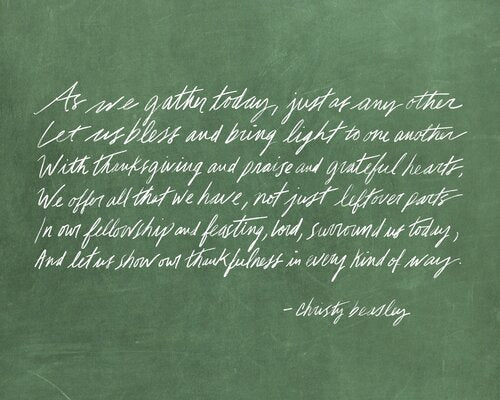 As we gather today, just as any other
Let us bless and bring light to one another
With thanksgiving and praise and grateful hearts,
We offer all that we have, not just leftover parts
In our fellowship and feasting, Lord, surround us today,
And let us show our thankfulness in every kind of way.
- christy beasley